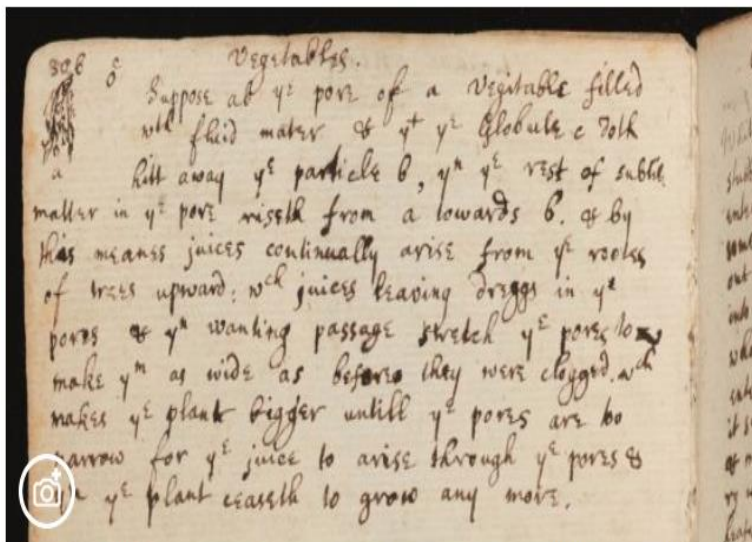 Vegetables.
Suppose ab yᵉ pore of a Vegitable filled
wᵗʰ fluid mater & yᵗ yᵉ Globule c doth
hitt away yᵉ particle b, yⁿ yᵉ rest of subtil
matter in yᵉ pore riseth from a towards b. & by
this meanes juices continually arise from yᵉ rootes
of trees upward: wᶜʰ juices leaving dreggs in yᵉ
pores & yⁿ wanting passage stretch yᵉ pores to
make yᵐ as wide as before they were clogged. wᶜʰ
makes yᵉ plant bigger untill yᵉ pores are too
narrow for yᵉ juice to arise through yᵉ pores &
yᵉ plant ceaseth to grow any more.